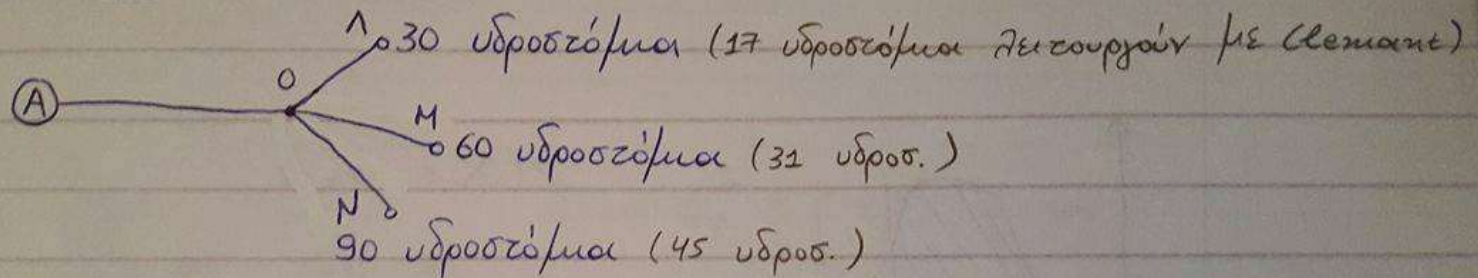 Λ 30 υδροστόμια (17 υδροστόμια λειτουργούν με Clemant)
Ο
Α
Μ
60 υδροστόμια (31 υδροσ.)
Ν
90 υδροστόμια (45 υδροσ.)